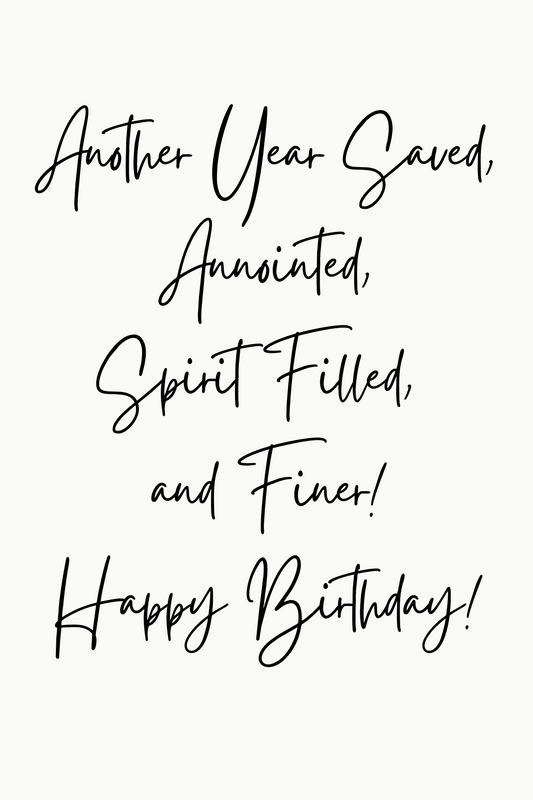 Another Year Saved,
Annointed,
Spirit Filled,
and Finer!
Happy Birthday!